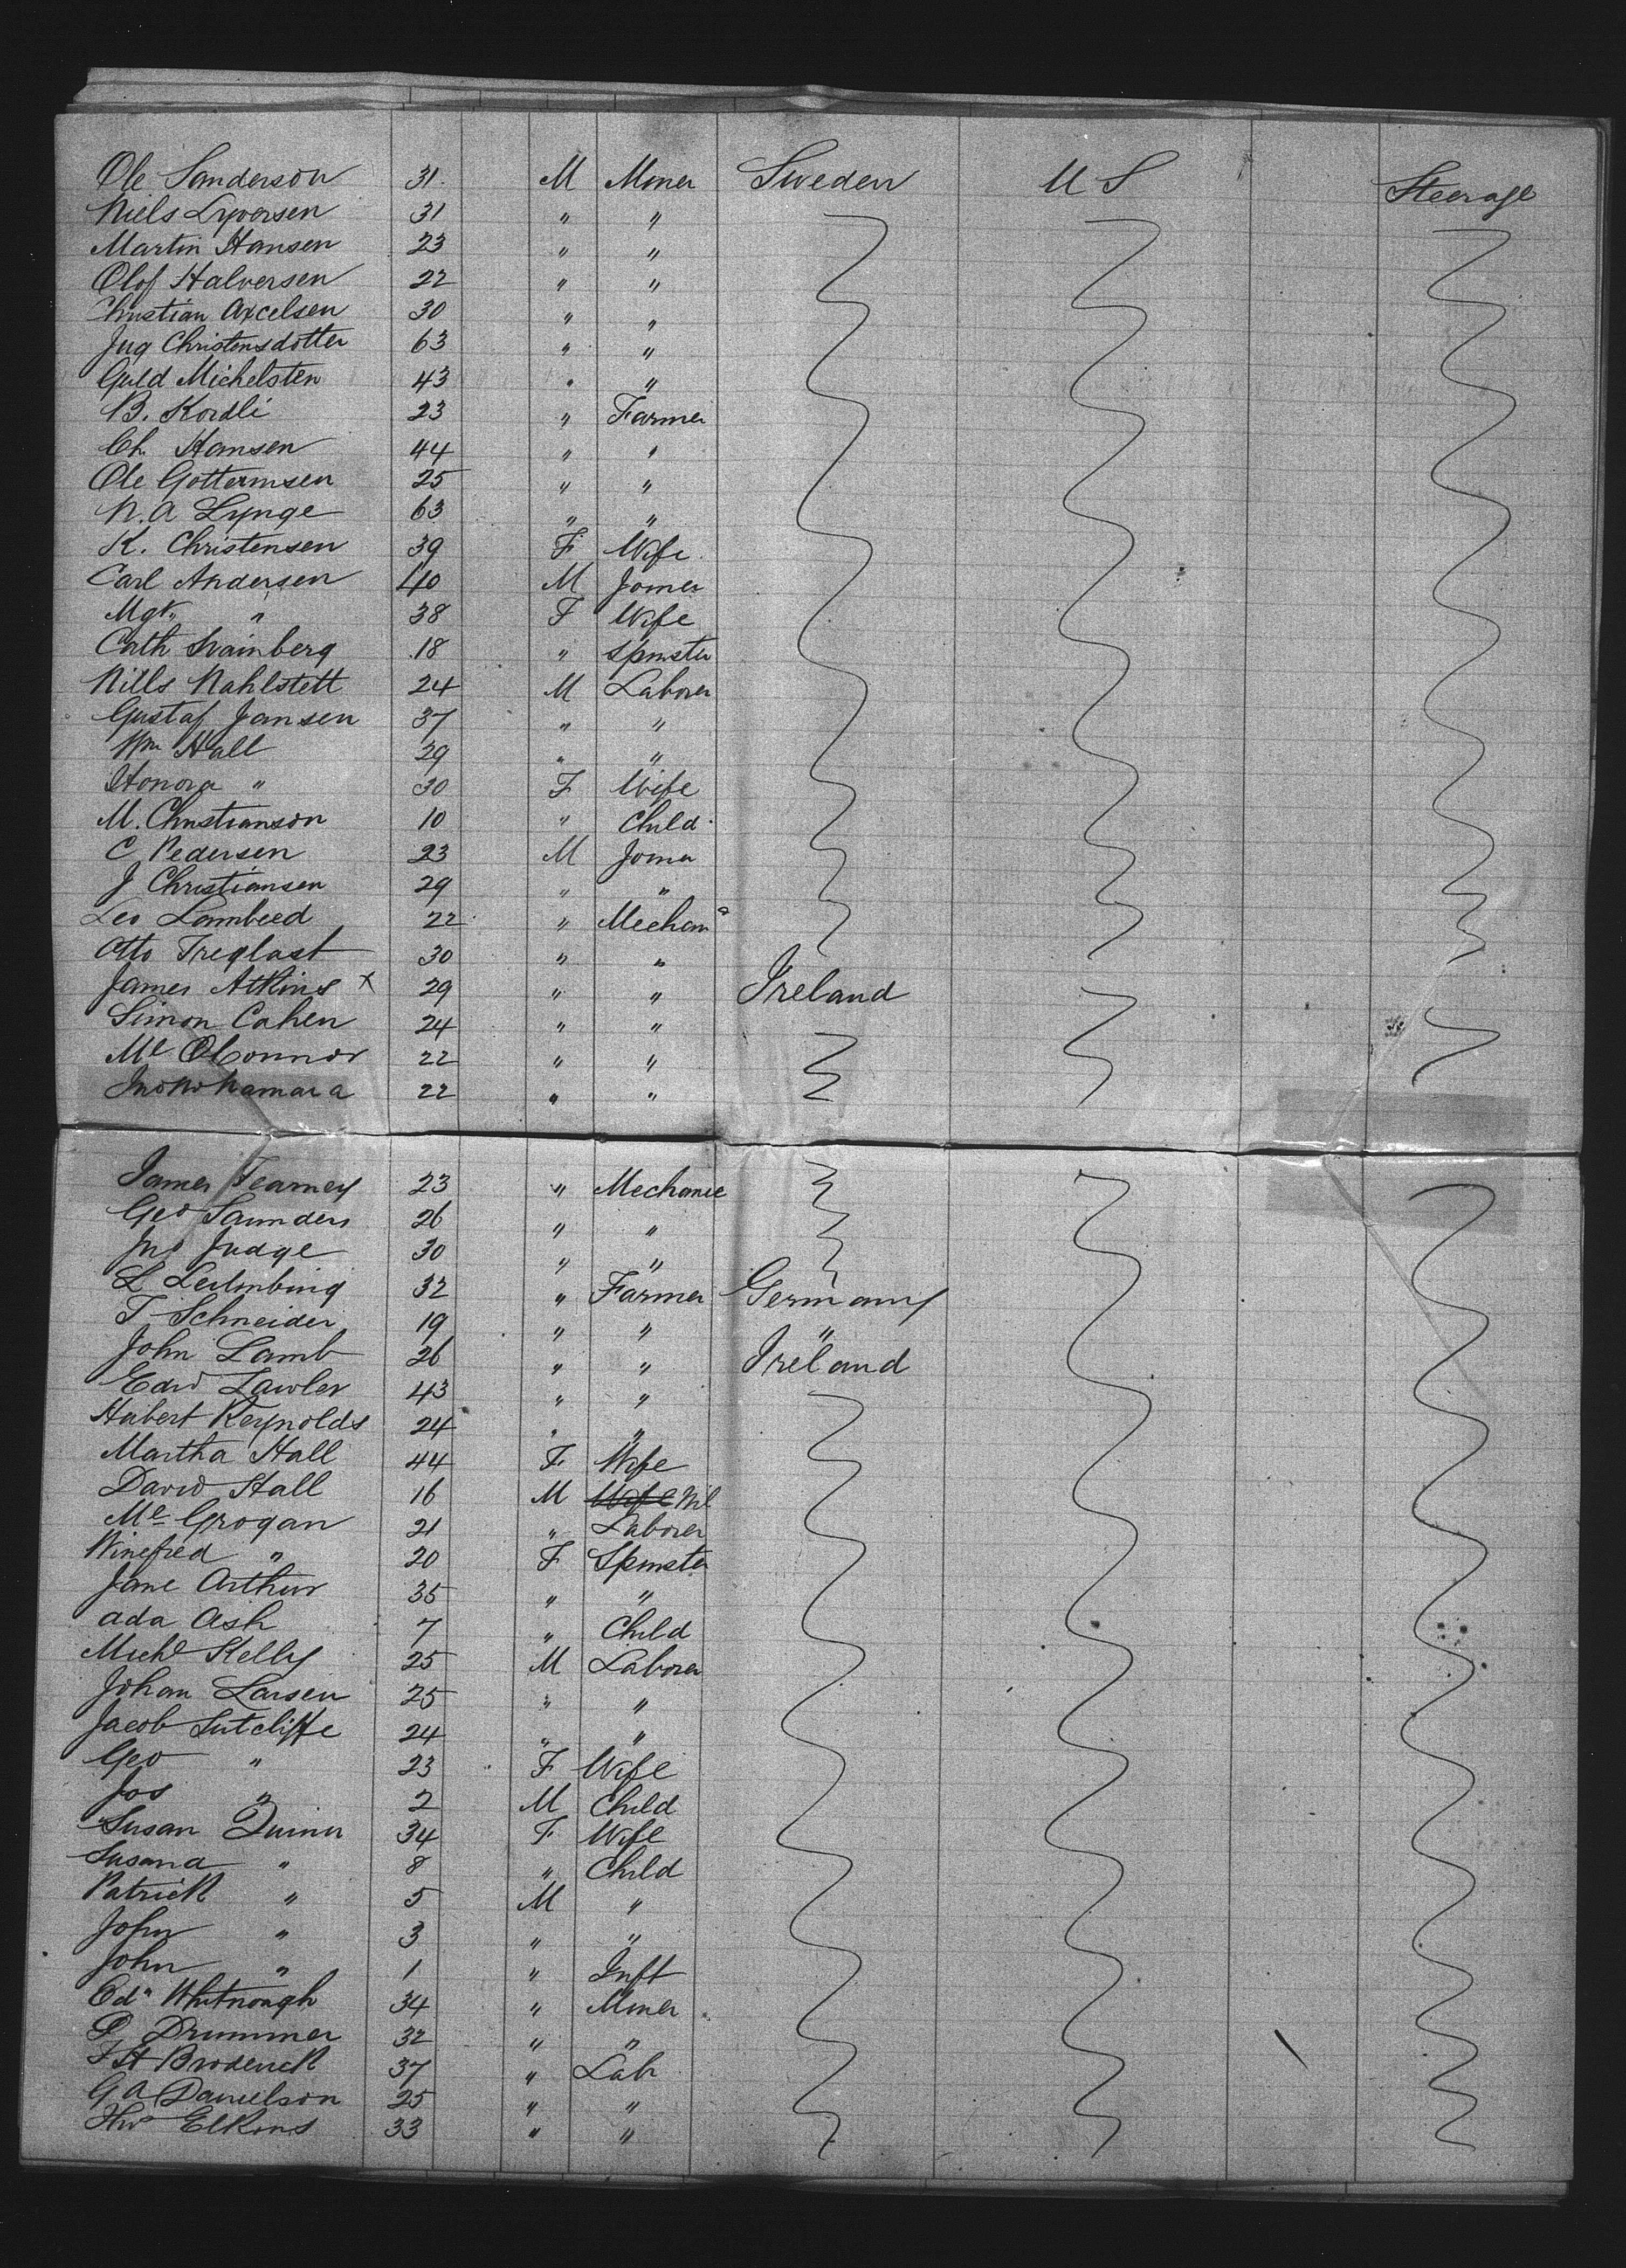 Ole Sanderson 31 M Miner Sweden U S Steerage
Niels Lyversen 31 " "
Martin Hansen 23 " "
Olof Halversen 22 " "
Christian Axcelsen 30 " "
Jug Christensdotter 63 " "
Guld Michelsten 43 " "
B. Kordli 23 " Farmer
Ch. Hansen 44 " "
Ole Gottermsen 25 " "
N. A Lynge 63 " "
K. Christensen 39 F Wife
Carl Andersen 40 M Joiner
Mgt. " 38 F Wife
Cath Svainberg 18 " Spinster
Nills Nahlstett 24 M Laborer
Gustaf Jansen 37 " "
Wm Hall 29 " "
Honora " 30 F Wife
M. Christianson 10 " Child
C Pedersen 23 M Joiner
J Christiansen 29 " "
Leo Lambeed 22 " Mechanc
Otto Treglast 30 " "
James Atkins x 29 " " Ireland
Simon Cahen 24 " "
Ml OConnor 22 " "
Jno McNamara 22 " "
James Fearney 23 " Mechanic
Geo Saunders 26 " "
Jno Judge 30 " "
L 32 " Farmer Germany
T Schneider 19 " " "
John Lamb 26 " " Ireland
Edwd Lawler 43 " "
Hubert Reynolds 24 " "
Martha Hall 44 F Wife
David Hall 16 M Wife Nil
Ml Grogan 21 " Laborer
Winefred " 20 F Spinster
Jane Arthur 35 " "
Ada Ash 7 " Child
Michl Kelly 25 M Laborer
Johan Larsen 25 " "
Jacob Sutcliffe 24 " "
Geo " 23 F Wife
Jos " 2 M Child
Susan Quinn 34 F Wife
Susana " 8 " Child
Patrick " 5 M "
John " 3 " "
John " 1 " Inft
Edn Whitnough 34 " Miner
P Drummer 32 " "
F H Broderick 37 " Lab
G A Danielson 25 " "
Hw Elkins 33 " "